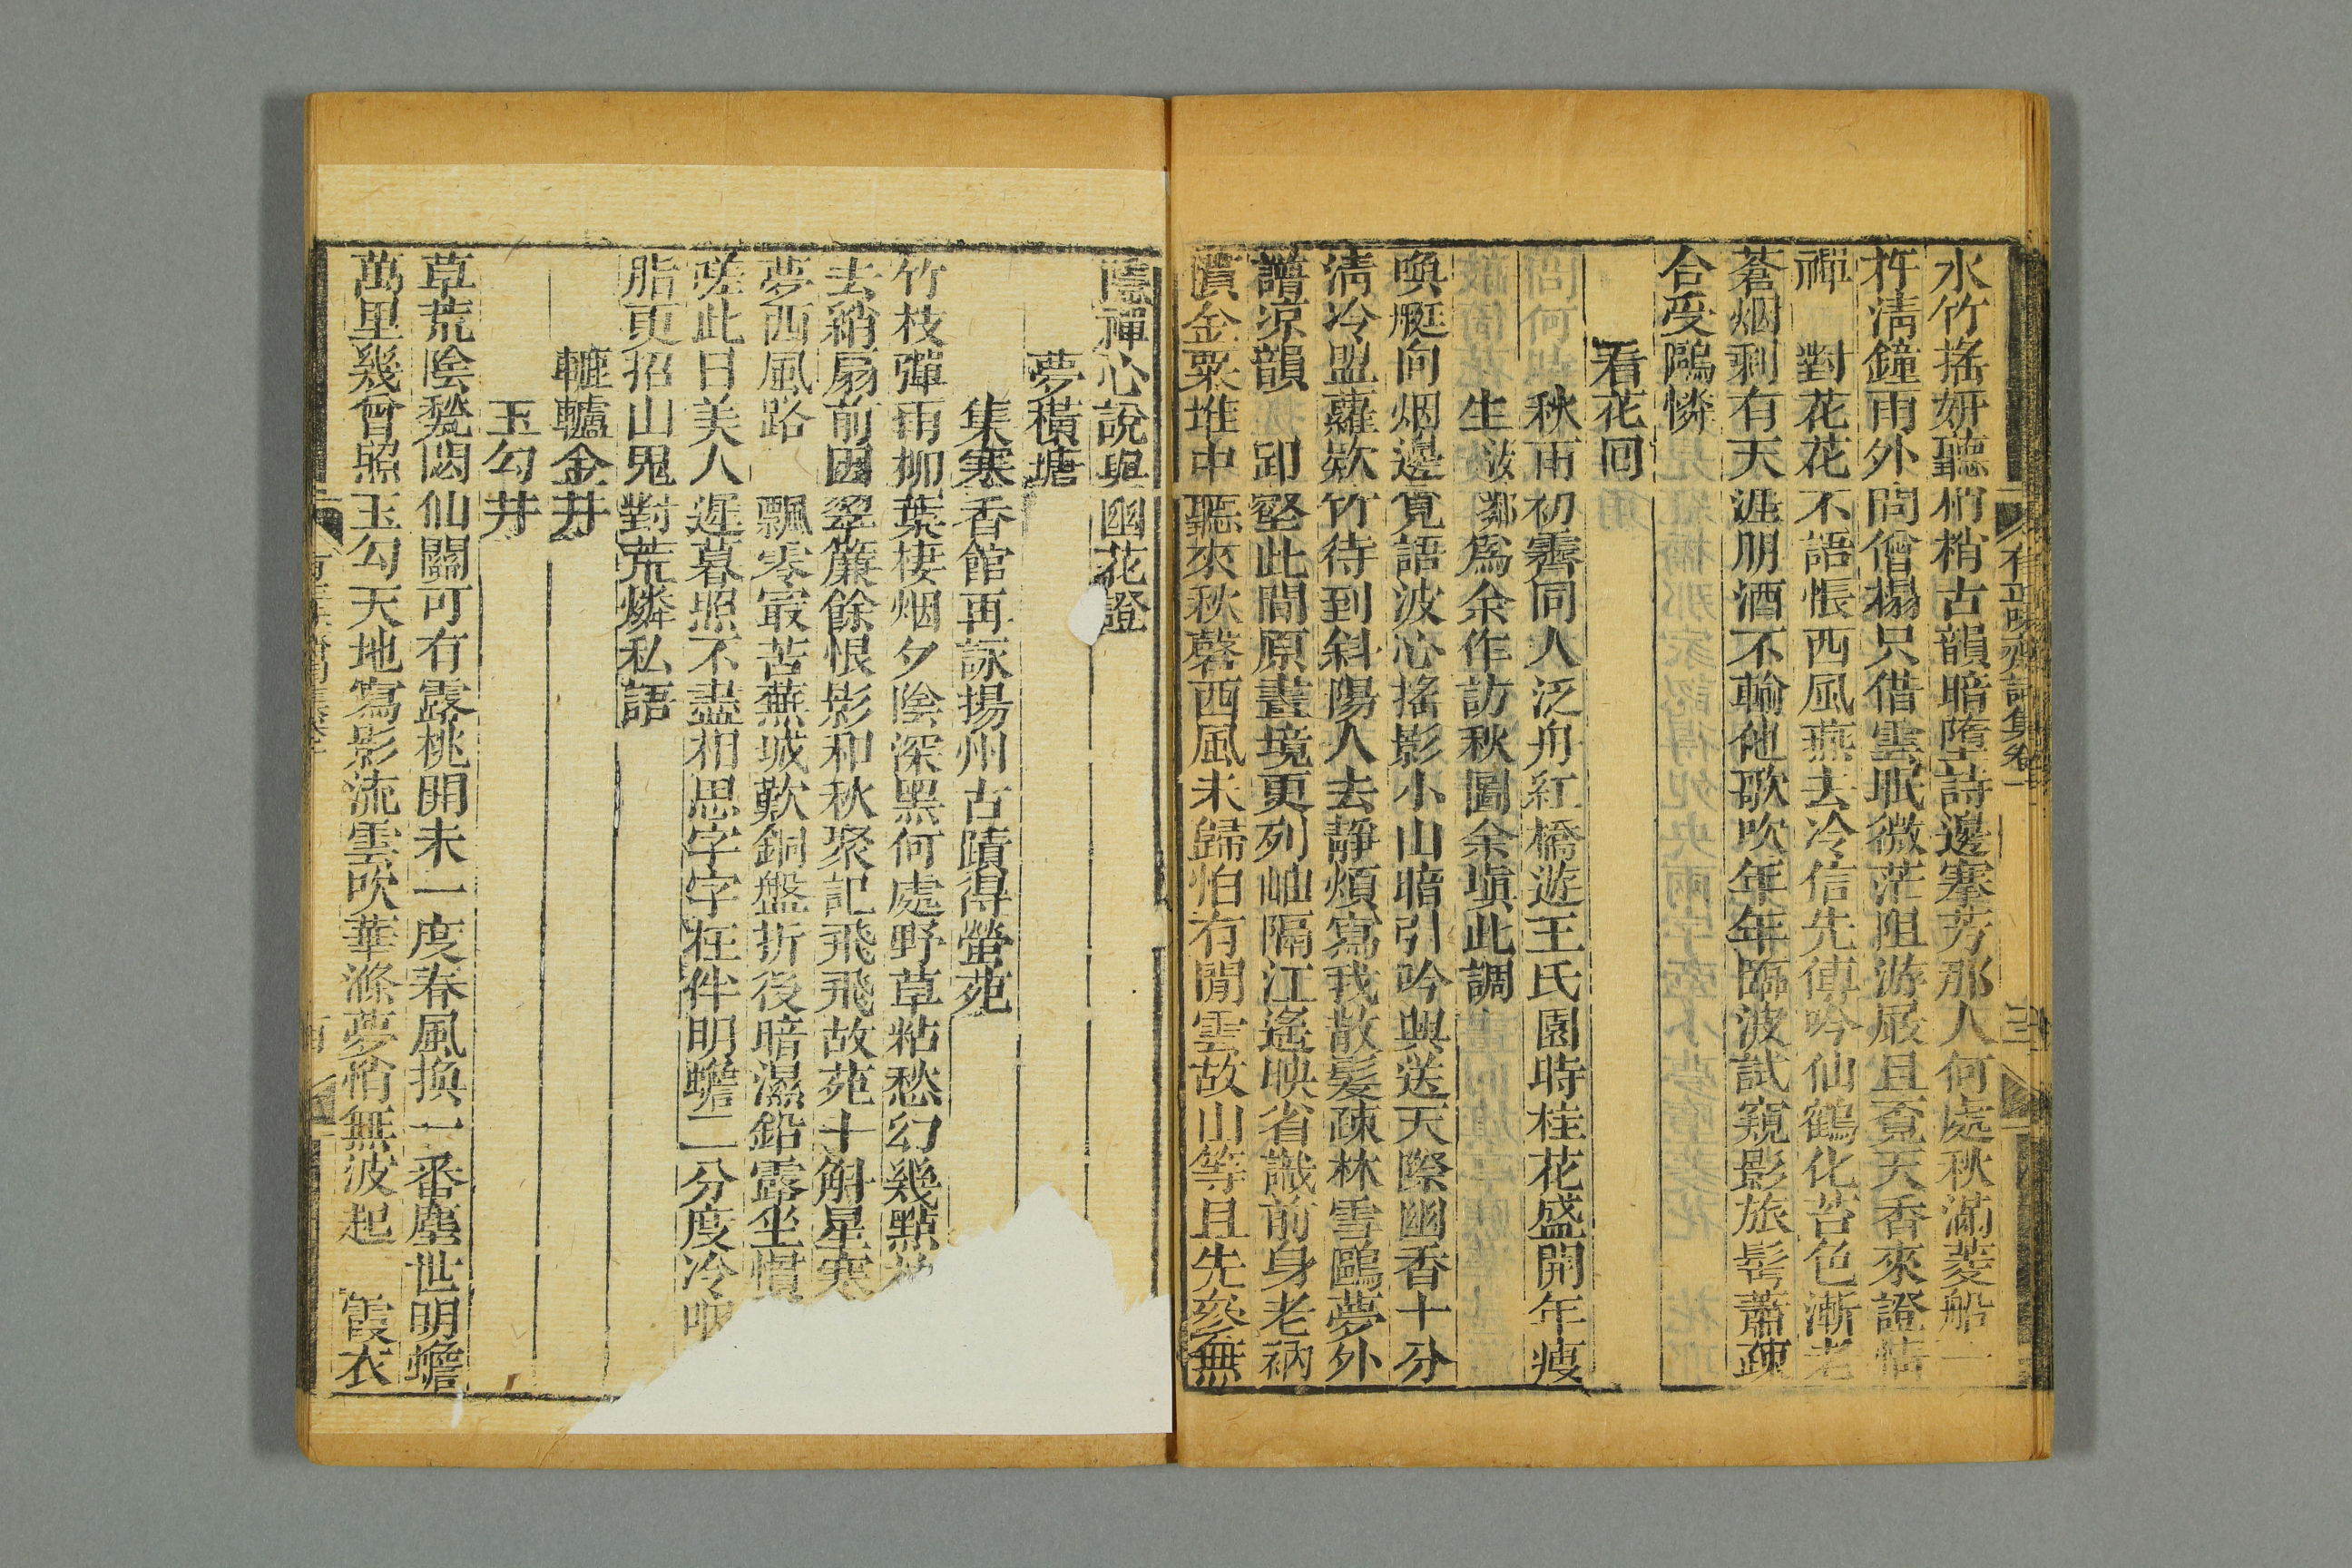 水竹搖妍聽梢梢古韻暗墮詩邊搴芳那人何處秋滿菱船一
杵清鐘雨外問僧榻只借雲眠微茫阻游屐且覓天香來證情
禪　對花花不語悵西風燕去冷信先傳吟仙鶴化苔色漸老
蒼烟剩有天涯朋酒不輸他歌吹年年臨波試窺影旅髩蕭疎
合受鷗憐
看花回
秋雨初霽同人泛舟紅橋遊王氏園時桂花盛開年瘦
生浚鄰爲余作訪秋圖余塡此調
喚艇向烟邊覓語波心搖影小山暗引吟興送天際幽香十分
清冷盟蘿款竹待到斜陽人去靜煩寫我散髮疎林雪鷗夢外
譜涼韻　卸壑此間原畫境更列岫隔江遙映省識前身老衲
賸金粟堆中聽來秋磬西風未歸怕有閒雲故山等且先參無
隱禪心說與幽花證
夢橫塘
集寒香館再詠揚州古蹟得螢苑
竹枝彈雨柳葉棲烟夕陰深黑何處野草粘愁幻幾點
去綃扇前因翠簾餘恨影和秋聚記飛飛故苑十斛星寒
夢西風路　飄零最苦蕪城歎銅盤折後暗濕鉛露坐慣
嗟此日美人遲暮照不盡相思字字在伴明蟾二分度冷
脂更招山鬼對荒燐私語
轆轤金井
玉勾井
草荒陰甃閟仙關可有露桃開未一度春風換一番塵世明蟾
萬里幾曾照玉勾天地寫影流雲吹華滌夢悄無波起　霞衣
有正味齋詞集卷二